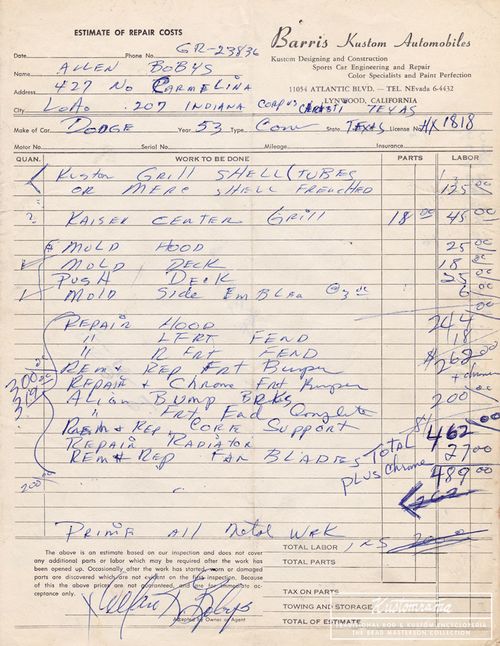 ESTIMATE OF REPAIR COSTS
Barris Kustom Automobiles
Kustom Designing and Construction
Sports Car Engineering and Repair
Color Specialists and Paint Perfection
11054 ATLANTIC BLVD. — TEL. NEvada 6-4432
LYNWOOD, CALIFORNIA
Date Phone No. GR-23836
Name ALLEN BOBYS
Address 427 No CARMELINA
City LoAo 207 INDIANA CORPUS CHRISTI TEXAS
Make of Car DODGE Year 53 Type Conv State TEXAS License No. HX1818
Motor No. Serial No. Mileage Insurance
QUAN. WORK TO BE DONE PARTS LABOR
Kustom Grill SHELL (TUBES
OR MERC SHELL FRENCHED 125 00
? KAISER CENTER GRILL 18 00 45 00
MOLD HOOD 25 00
MOLD DECK 18 00
PUSH DECK 25 00
MOLD Side EmBLem @3 00 6 00
REPAIR HOOD 244
" LEFT FEND 18
" R FRT FEND $262 00
REM & REP FRT Bumper + chrome
REPAIR & Chrome FRT Bumper 200 00
300 00
Align BUMP BRKS
" FRT. End Complete
REM & REP. CORE SUPPORT TOTAL 462 00
REPAIR RADIATOR PLUS Chrome 27 00
REM & REP FAN BLADES 489 00
200 00
262
Prime All Metal Work
The above is an estimate based on our inspection and does not cover
any additional parts or labor which may be required after the work has
been opened up. Occasionally after the work has started, worn or damaged
parts are discovered which are not evident on the first inspection. Because
of this the above prices are not guaranteed, and are for immediate ac-
ceptance only.
Accepted by Owner or Agent
TOTAL LABOR
TOTAL PARTS
TAX ON PARTS
TOWING AND STORAGE
TOTAL OF ESTIMATE
Kustomrama
TRADITIONAL ROD & KUSTOM ENCYCLOPEDIA
THE BRAD MASTERSON COLLECTION